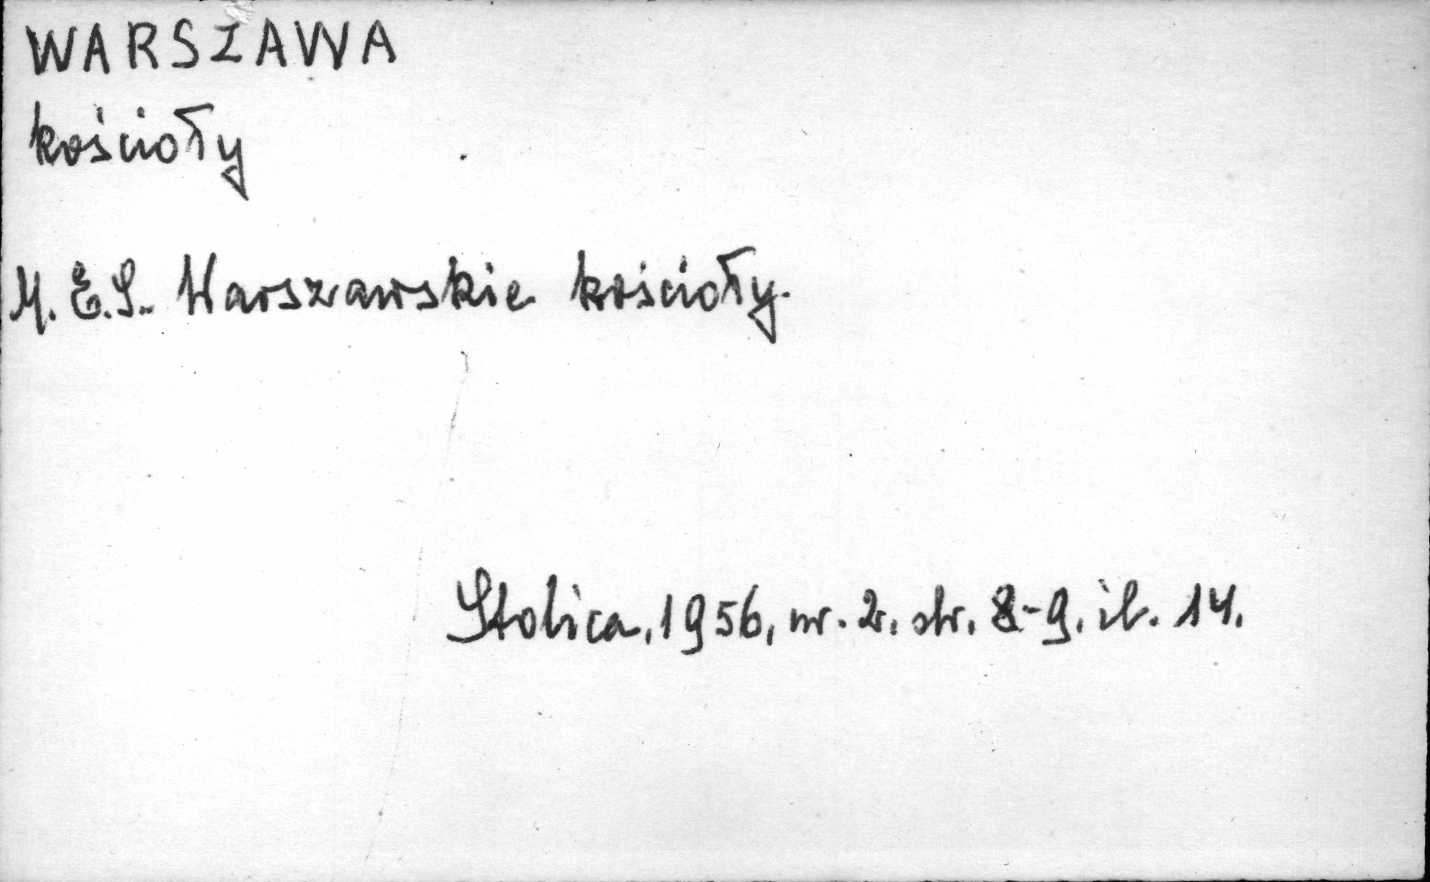 WARSZAWA
kościoły
M. E. S. Warszawskie kościoły.
Stolica, 1956, nr. 2. str. 8-9. il. 14.